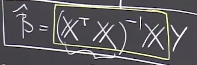 β̂ = (XᵀX)⁻¹XY